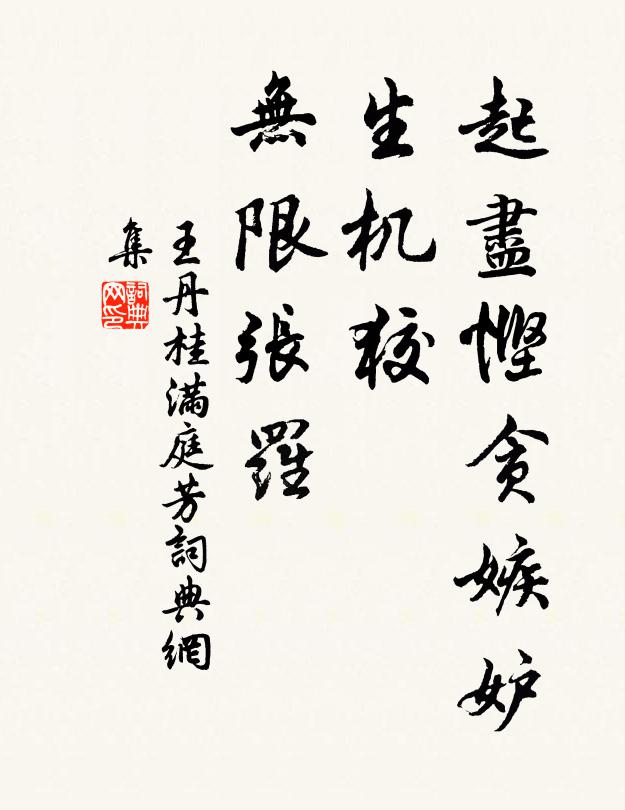 起盡慳貪嫉妒
生机狡
無限張羅
王丹桂滿庭芳詞典網
集
詞典網印